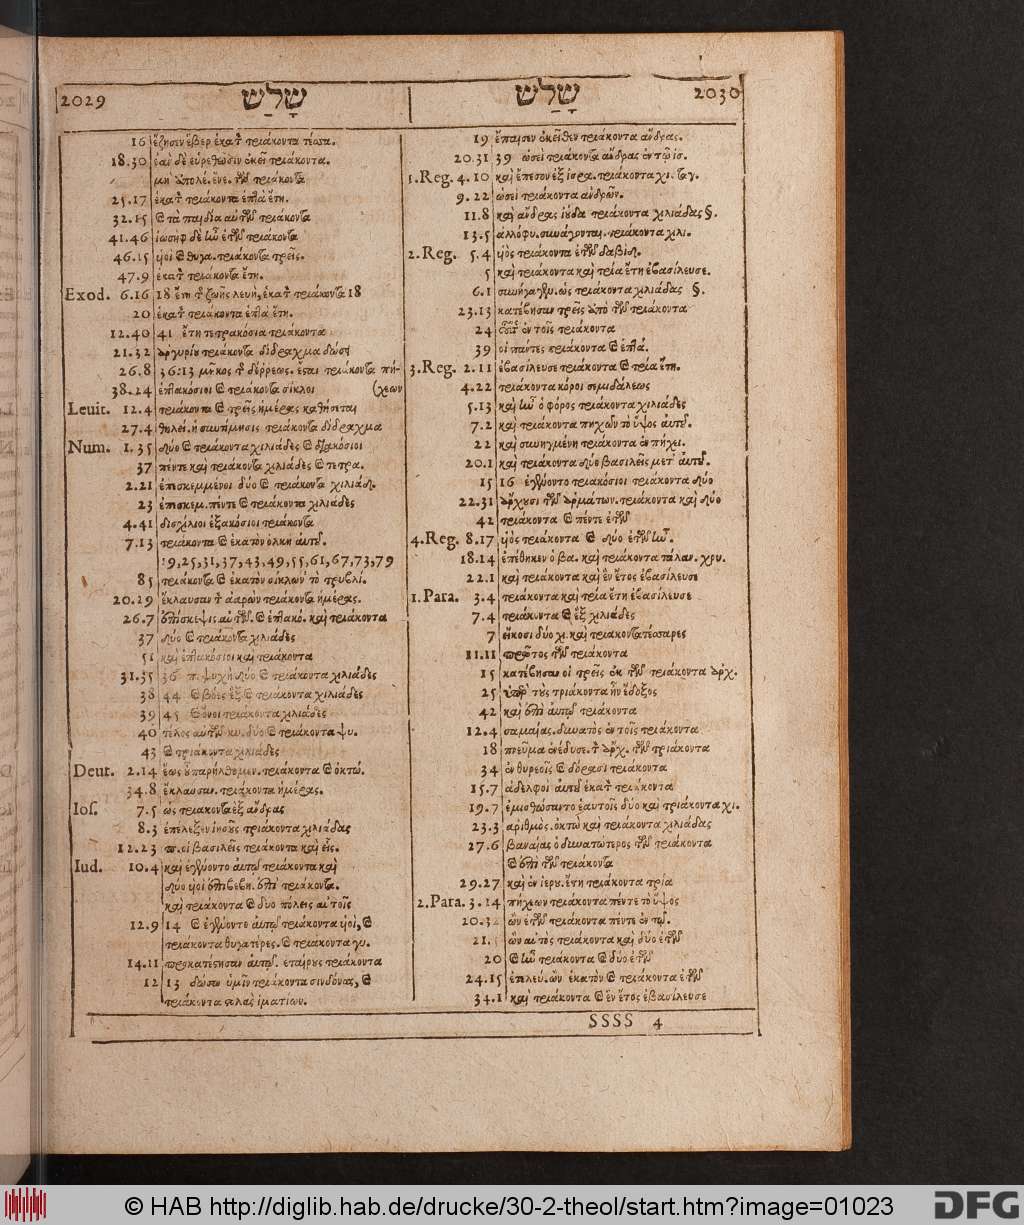 2029 שָׁלַשׁ
16 ἔζησεν ἕβερ ἑκατ τριάκοντα τέσσα.
18.30 ἐὰν δὲ εὑρεθῶσιν ἐκεῖ τριάκοντα.
μὴ τριάκοντα
25.17 ἑκατ τριάκοντα ἑπτὰ ἔτη.
32.15 καὶ τὰ παιδία αὐτῶν τριάκοντα
41.46 ἰωσὴφ δὲ ἦν ἐτῶν τριάκοντα
46.15 υἱοὶ καὶ θυγα. τριάκοντα τρεῖς.
47.9 ἑκατ τριάκοντα ἔτη.
Exod. 6.16 18 ἔτη τ ζωῆς λευὴ, ἑκατ τριάκοντα 18
20 ἑκατ τριάκοντα ἑπτὰ ἔτη.
12.40 41 ἔτη τετρακόσια τριάκοντα
21.32 ἀργυρίου τριάκοντα δίδραχμα δώσει
26.8 36:13 μῆκος τ δέρρεως. ἔσται τριάκοντα πή-
38.24 ἑπτακόσιοι καὶ τριάκοντα σίκλοι (χεων
Leuit. 12.4 τριάκοντα καὶ τρεῖς ἡμέρας καθήσεται
27.4 θηλεί. ἡ συντίμησις τριάκοντα δίδραχμα
Num. 1.35 δύο καὶ τριάκοντα χιλιάδες καὶ διακόσιοι
37 πέντε καὶ τριάκοντα χιλιάδες καὶ τετρα.
2.21 ἐπεσκεμμένοι δύο καὶ τριάκοντα χιλιάδ.
23 ἐπεσκεμ. πέντε καὶ τριάκοντα χιλιάδες
4.41 δισχίλιοι ἑξακόσιοι τριάκοντα
7.13 τριάκοντα καὶ ἑκατὸν ὁλκὴ αὐτοῦ.
19,25,31,37,43,49,55,61,67,73,79
85 τριάκοντα καὶ ἑκατὸν σίκλων τὸ τρυβλί.
20.29 ἔκλαυσαν τ ἀαρὼν τριάκοντα ἡμέρας.
26.7 ἐπίσκεψις αὐτῶν. καὶ ἑπτακό. καὶ τριάκοντα
37 δύο καὶ τριάκοντα χιλιάδες
51 καὶ ἑπτακόσιοι καὶ τριάκοντα
31.35 36 π. ψυχὴ δύο καὶ τριάκοντα χιλιάδες
38 44 καὶ βόες ἓξ καὶ τριάκοντα χιλιάδες
39 45 καὶ ὄνοι τριάκοντα χιλιάδες
40 τέλος αὐτῶν κυ. δύο καὶ τριάκοντα ψυ.
43 καὶ τριάκοντα χιλιάδες
Deut. 2.14 ἕως οὗ παρήλθομεν. τριάκοντα καὶ ὀκτώ.
34.8 ἔκλαυσαν. τριάκοντα ἡμέρας.
Ios. 7.5 ὡς τριάκοντα ἓξ ἄνδρας
8.3 ἐπέλεξεν ἰησοῦς τριάκοντα χιλιάδας
12.23 π. οἱ βασιλεῖς τριάκοντα καὶ εἷς.
Iud. 10.4 καὶ ἐγένοντο αὐτῷ τριάκοντα καὶ
δύο υἱοὶ ἐπιβεβη. ἐπὶ τριάκοντα.
καὶ τριάκοντα καὶ δυο πόλεις αὐτοῖς
12.9 14 καὶ ἐγένοντο αὐτῷ τριάκοντα υἱοὶ, καὶ
τριάκοντα θυγατέρες. καὶ τριάκοντα γυ.
14.11 προκατέστησαν αὐτοῦ. ἑταίρους τριάκοντα
12 13 δώσω ὑμῖν τριάκοντα σινδόνας, καὶ
τριάκοντα στολὰς ἱματίων.
שָׁלַשׁ 2030
19 ἔπαισεν ἐκεῖθεν τριάκοντα ἄνδρας.
20.31 39 ὡσεὶ τριάκοντα ἄνδρας ἐν τῷ ἰσ.
1.Reg. 4.10 καὶ ἔπεσον ἐξ ἰσρα. τριάκοντα χι. ταγ.
9.22 ὡσεὶ τριάκοντα ἀνδρῶν.
11.8 καὶ ἄνδρας ἰούδα τριάκοντα χιλιάδας §.
13.5 ἀλλόφυ. συνάγονται. τριάκοντα χιλι.
2.Reg. 5.4 υἱὸς τριάκοντα ἐτῶν δαβίδ.
5 καὶ τριάκοντα καὶ τρία ἔτη ἐβασίλευσε.
6.1 συνήγαγεν. ὡς τριάκοντα χιλιάδας §.
23.13 κατέβησαν τρεῖς ἀπὸ τῶν τριάκοντα
24 ἐν τοῖς τριάκοντα
39 οἱ πάντες τριάκοντα καὶ ἑπτά.
3.Reg. 2.11 ἐβασίλευσε τριάκοντα καὶ τρία ἔτη.
4.22 τριάκοντα κόροι σεμιδάλεως
5.13 καὶ ἦν ὁ φόρος τριάκοντα χιλιάδες
7.2 καὶ τριάκοντα πηχῶν τὸ ὕψος αὐτοῦ.
22 καὶ συνηγμένη τριάκοντα ἐν πήχει.
20.1 καὶ τριάκοντα δύο βασιλεῖς μετ' αὐτοῦ.
15 16 ἐγένοντο τριακόσιοι τριάκοντα δύο
22.31 ἄρχουσι τῶν ἁρμάτων. τριάκοντα καὶ δύο
42 τριάκοντα καὶ πέντε ἐτῶν
4.Reg. 8.17 υἱὸς τριάκοντα καὶ δύο ἐτῶν ἦν.
18.14 ἐπέθηκεν ὁ βα. καὶ τριάκοντα τάλαν. χρυ.
22.1 καὶ τριάκοντα καὶ ἓν ἔτος ἐβασίλευσε
1.Para. 3.4 τριάκοντα καὶ τρία ἔτη ἐβασίλευσε
7.4 τριάκοντα καὶ ἓξ χιλιάδες
7 εἴκοσι δύο χι. καὶ τριακοντατέσσαρες
11.11 πρῶτος τῶν τριάκοντα
15 κατέβησαν οἱ τρεῖς ἐκ τῶν τριάκοντα ἀρχ.
25 ὑπὲρ τοὺς τριάκοντα ἦν ἔνδοξος
42 καὶ ἐπὶ αὐτῷ τριάκοντα
12.4 σαμαίας. δυνατὸς ἐν τοῖς τριάκοντα
18 πνεῦμα ἐνέδυσε. τ ἀρχ. τῶν τριάκοντα
34 ἐν θυρεοῖς καὶ δόρασι τριάκοντα
15.7 ἀδελφοὶ αὐτοῦ ἑκατ τριάκοντα
19.7 ἐμισθώσαντο ἑαυτοῖς δύο καὶ τριάκοντα χι.
23.3 ἀριθμὸς. ὀκτὼ καὶ τριάκοντα χιλιάδας
27.6 βαναίας ὁ δυνατώτερος τῶν τριάκοντα
καὶ ἐπὶ τῶν τριάκοντα
29.27 καὶ ἐν ἱερου. ἔτη τριάκοντα τρία
2.Para. 3.14 πήχεων τριάκοντα πέντε τὸ ὕψος
20.32 ὢν ἐτῶν τριάκοντα πέντε ἐν τῷ.
21. ὢν αὐτὸς τριάκοντα καὶ δύο ἐτῶν
20 καὶ ἦν τριάκοντα καὶ δύο ἐτῶν
24.15 ἐτελεύ. ὢν ἑκατὸν καὶ τριάκοντα ἐτῶν
34.1 καὶ τριάκοντα καὶ ἓν ἔτος ἐβασίλευσε
SSSS 4
© HAB http://diglib.hab.de/drucke/30-2-theol/start.htm?image=01023
DFG